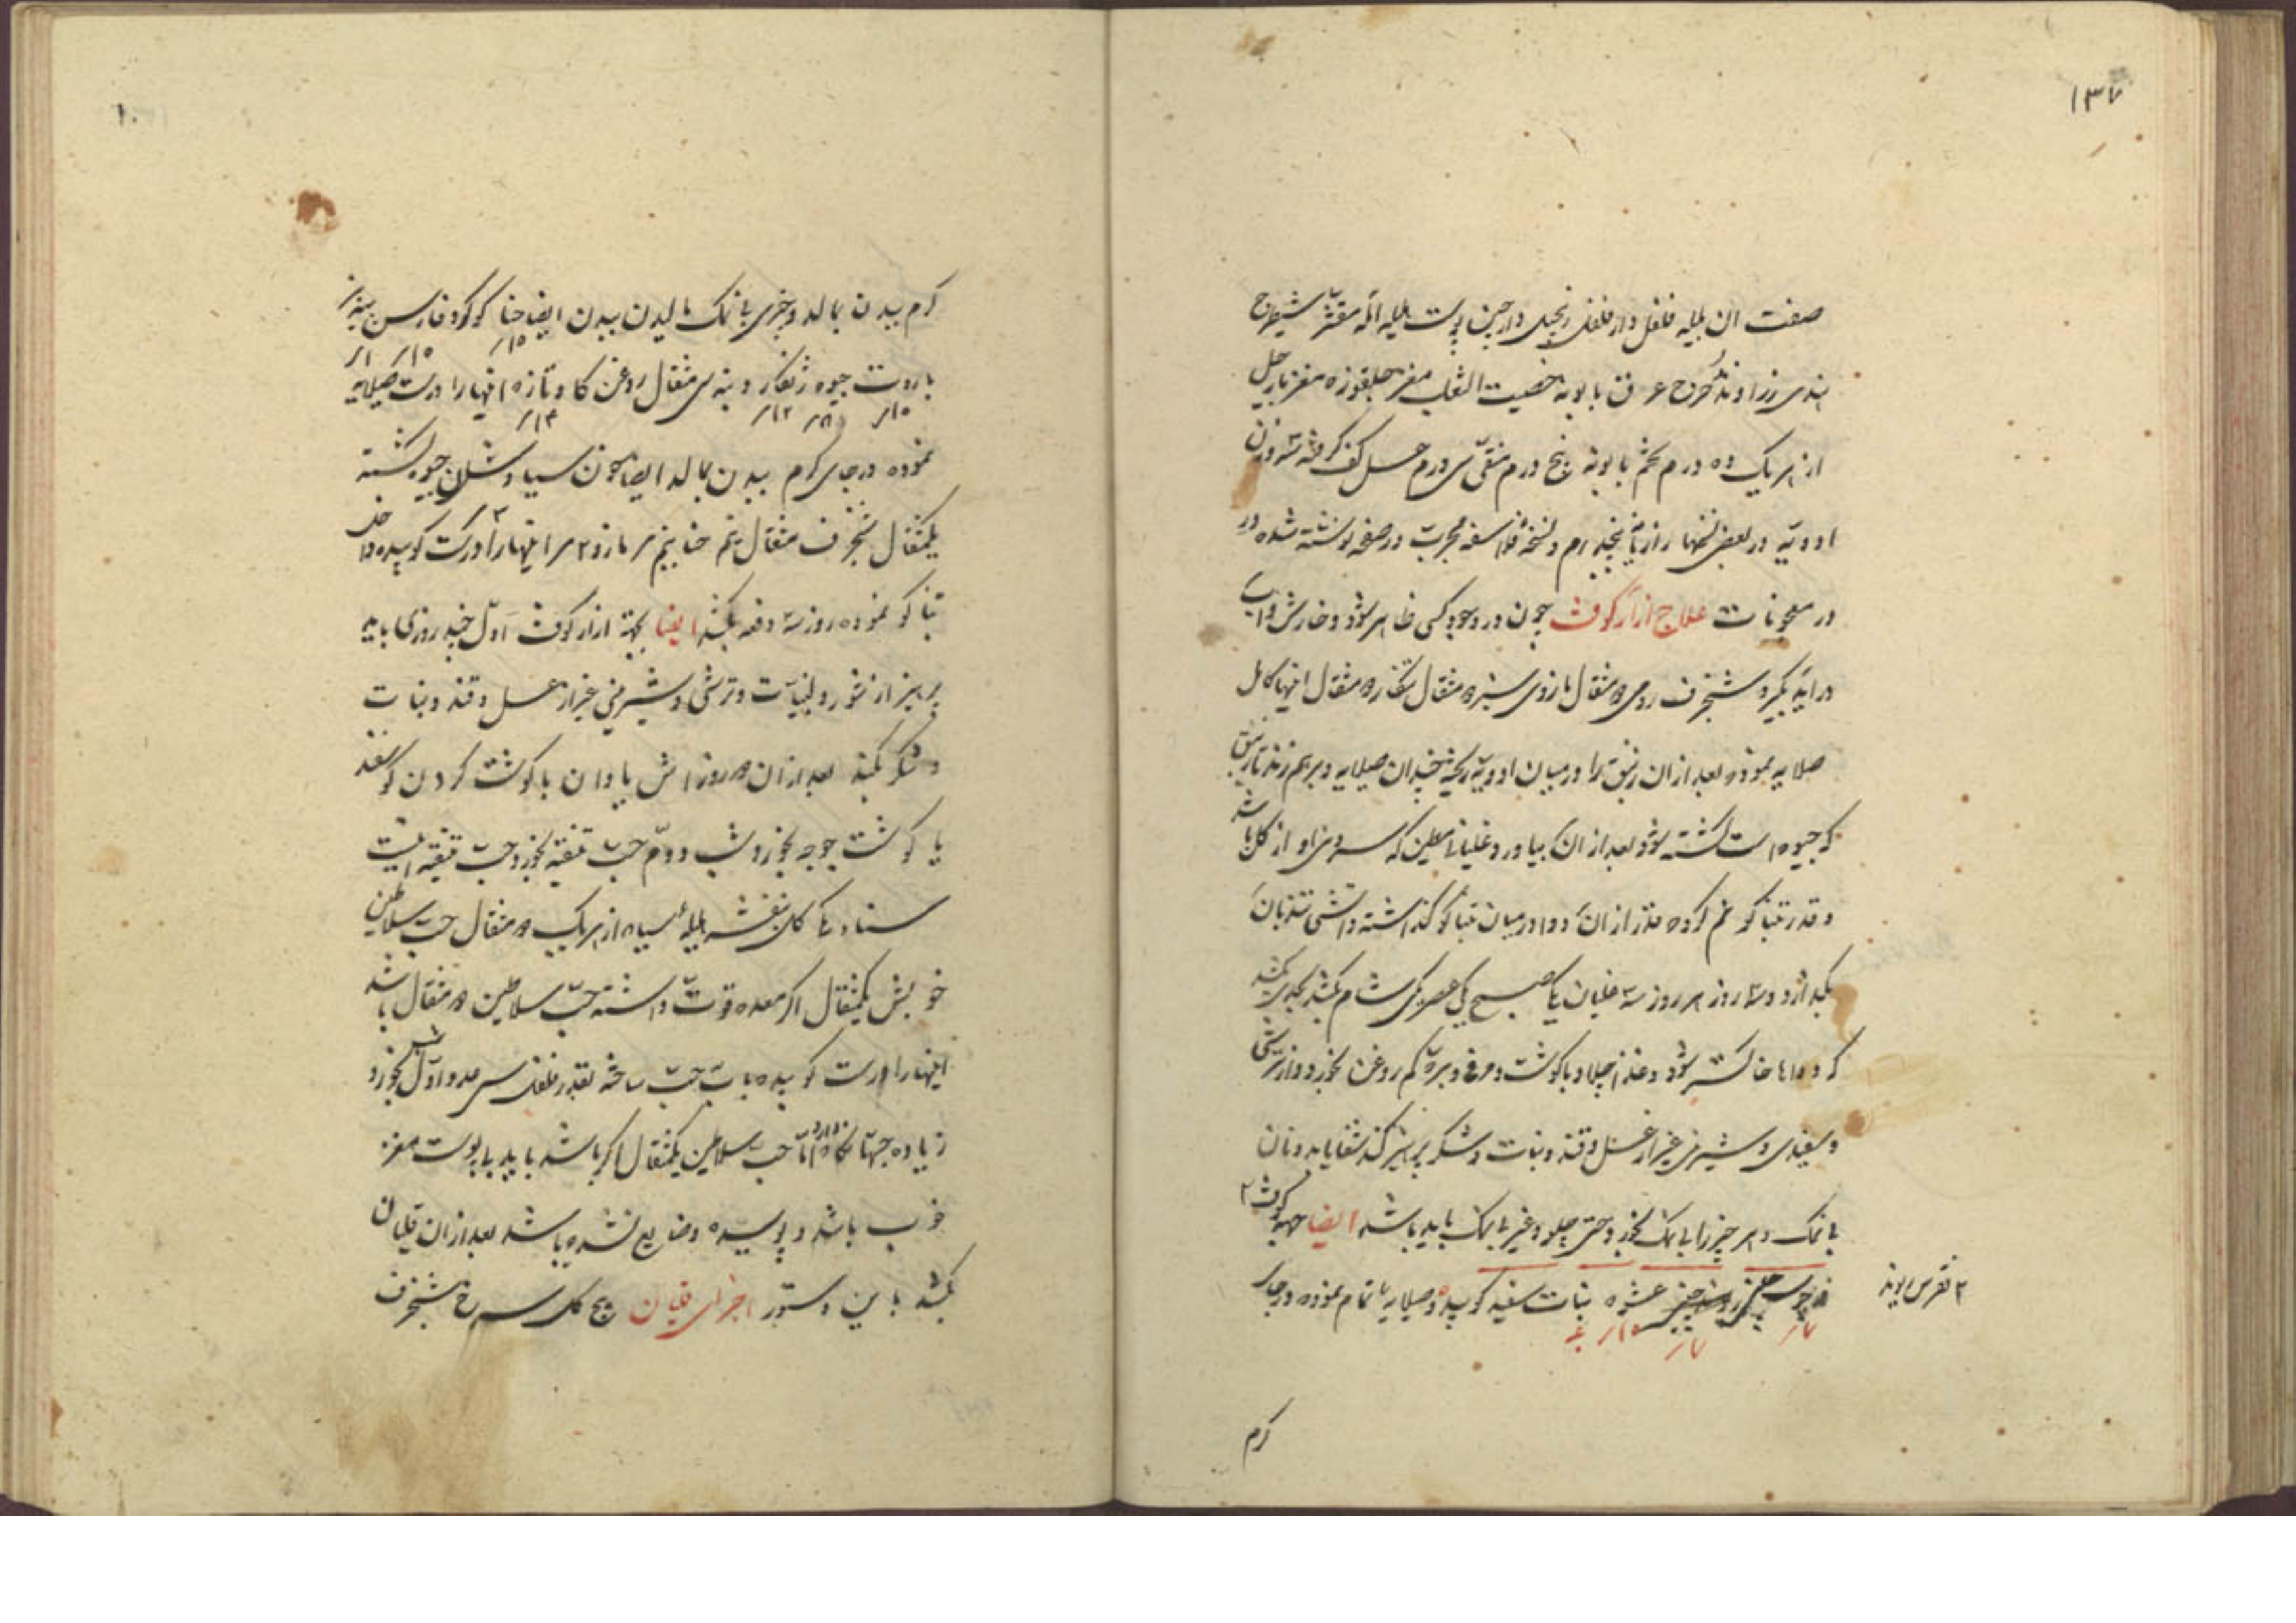 ۱۳۷
صفت ان بلیله فلفل دارفلفل زنجبیل دارچین پوست هلیله امله مقشر شیطرج
هندی زراوند مدحرج عرق بابونه خصیت الثعلب مغز جلغوزه مغز نارجیل
از هر یک ده درم تخم بابونه پنج درم منقی سی درم عسل کف کرفته سه وزن
ادویه در بعضی نسخها رازیانه پنجدرم و نسخهٔ فلاسفه مجربت در صفحه نوشته شده در
در معجونات علاج ازار کوفت چون در وجود کسی ظاهر شود و خارش
در اید بکیرد شنجرف رومی ۵ مثقال مازوی سبز ۵ مثقال تنکار ۵ مثقال اینها کامل
صلایه نموده بعد از ان زیبق را در میان ادویه ریخته چندان صلایه و برهم زند تا زیبق
که جیوه است کشته شود بعد از ان بیاورد غلیانی که سروی او از کل باشد
و قدر تنباکو نم کرده قدر از ان دوا در میان تنباکو کذاشته و اتشی تند بان
بکذارد و سه روز هر روز سه غلیان یکی صبح یکی عصر یکی شام بکشد بکشد
که دواها خاکستر شود و غذا چلاو با کوشت و مرغ و بره کم روغن بخورد و از ترشی
و سفیدی و شیرینی غیر از عسل و قند و نبات و شکر پرهیز کند شفا یابد و نان
بی نمک و هر چیز را بی نمک بخورد حتی چلو و غیر بی نمک باید باشد ایضا جهة کوفت ۲
چینی عشبه نبات سفید کوبیده و صلایه تمام نموده در جای
۲
کرم
۱۰
کرم ببدن بمالد و چیزی با نمک مالیدن ببدن ایضا حنا کوکرد فارسی
باروت جیوه زنکار و پنبه سی مثقال روغن کاو تازه اینها را درست صلایه
نموده در جای کرم ببدن بمالد ایضا خون سیاوشان جیوه کشته
یکمثقال شنجرف مثقال نیم حنا پنجم مازو ۲ اینها را درست کوبیده داخل
تنباکو نموده روز سه دفعه بکشد ایضا بجهة ازار کوفت اول چند روزی باید
پرهیز از شور و لبنیات و ترشی و شیرینی غیر از عسل و قند و نبات
و شکر بکند بعد از ان ۵ روز اش یا وان با کوشت کردن کوسفند
یا کوشت جوجه بخورد شب دوم حب تنقیه بخورد حب تنقیه اینست
سناء مکی کل بنفشه هلیلهٔ سیاه از هر یک ۵ مثقال حب سلاطین
خوبش یکمثقال اکر معده قوت داشته حب سلاطین ۵ مثقال باشد
اینها را درست کوبیده باب حب ساخته بقدر فلفل سی عدد اول بخورد
زیاده جهتا اما حب سلاطین یکمثقال اکر باشد باید با پوست مغز
خوب باشد و پوسیده و ضایع نشده باشد بعد از ان قلیان
بکشد باین دستور اجزای قلیان بیخ کل سرخ شنجرف